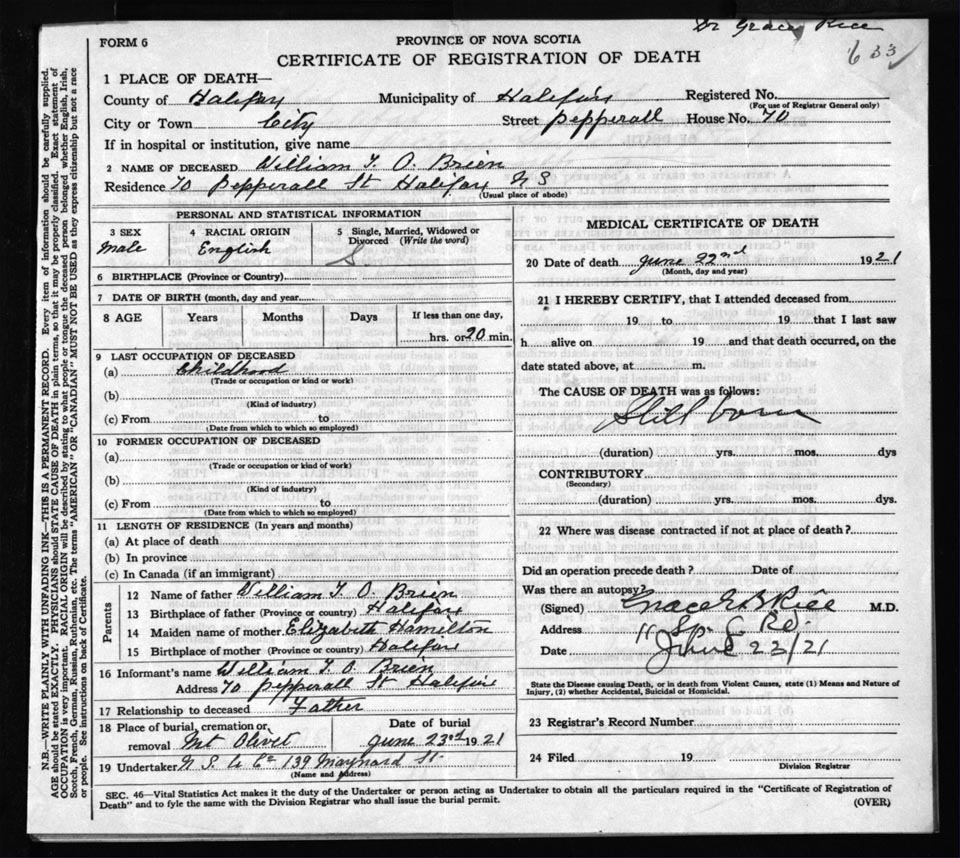 Dr Grace Rice
633
FORM 6
PROVINCE OF NOVA SCOTIA
CERTIFICATE OF REGISTRATION OF DEATH
1 PLACE OF DEATH—
County of Halifax Municipality of Halifax Registered No.
(For use of Registrar General only)
City or Town City Street Pepperall House No. 70
If in hospital or institution, give name
2 NAME OF DECEASED William T. O. Brien
Residence 70 Pepperall St Halifax N S
(Usual place of abode)
PERSONAL AND STATISTICAL INFORMATION
3 SEX 4 RACIAL ORIGIN 5 Single, Married, Widowed or Divorced (Write the word)
Male English S
6 BIRTHPLACE (Province or Country)
7 DATE OF BIRTH (month, day and year
8 AGE Years Months Days If less than one day,
hrs. or 20 min.
9 LAST OCCUPATION OF DECEASED
(a) Childhood
(Trade or occupation or kind or work)
(b)
(Kind of industry)
(c) From to
(Date from which to which so employed)
10 FORMER OCCUPATION OF DECEASED
(a)
(Trade or occupation or kind of work)
(b)
(Kind of industry)
(c) From to
(Date from which to which so employed)
11 LENGTH OF RESIDENCE (In years and months)
(a) At place of death
(b) In province
(c) In Canada (if an immigrant)
Parents
12 Name of father William T. O. Brien
13 Birthplace of father (Province or country) Halifax
14 Maiden name of mother Elizabeth Hamilton
15 Birthplace of mother (Province or country) Halifax
16 Informant's name William T. O. Brien
Address 70 Pepperall St Halifax
17 Relationship to deceased Father
18 Place of burial, cremation or removal Mt Olivet Date of burial June 23rd 1921
19 Undertaker N S U Co 139 Maynard St.
(Name and Address)
MEDICAL CERTIFICATE OF DEATH
20 Date of death June 22nd 1921
(Month, day and year)
21 I HEREBY CERTIFY, that I attended deceased from
19 to 19 that I last saw
h alive on 19 and that death occurred, on the
date stated above, at m.
The CAUSE OF DEATH was as follows:
Still born
(duration) yrs. mos. dys
CONTRIBUTORY
(Secondary)
(duration) yrs. mos. dys.
22 Where was disease contracted if not at place of death?
Did an operation precede death? Date of
Was there an autopsy?
(Signed) Grace E B Rice M.D.
Address 11 Sp. G. Rd.
Date June 23/21
State the Disease causing Death, or in death from Violent Causes, state (1) Means and Nature of
Injury, (2) whether Accidental, Suicidal or Homicidal.
23 Registrar's Record Number
24 Filed 19
Division Registrar
SEC. 46—Vital Statistics Act makes it the duty of the Undertaker or person acting as Undertaker to obtain all the particulars required in the "Certificate of Registration of
Death" and to fyle the same with the Division Registrar who shall issue the burial permit. (OVER)
N.B.—WRITE PLAINLY WITH UNFADING INK—THIS IS A PERMANENT RECORD. Every item of information should be carefully supplied.
AGE should be stated EXACTLY. PHYSICIANS should STATE CAUSE OF DEATH in plain terms, so that it may be properly classified. Exact statement of
OCCUPATION is very important. RACIAL ORIGIN will be described by stating to what people or tongue the deceased person belonged whether English, Irish,
Scotch, French, German, Russian, Ruthenian, etc. The terms "AMERICAN" OR "CANADIAN" MUST NOT BE USED as they express citizenship but not a race
or people. See instructions on back of Certificate.